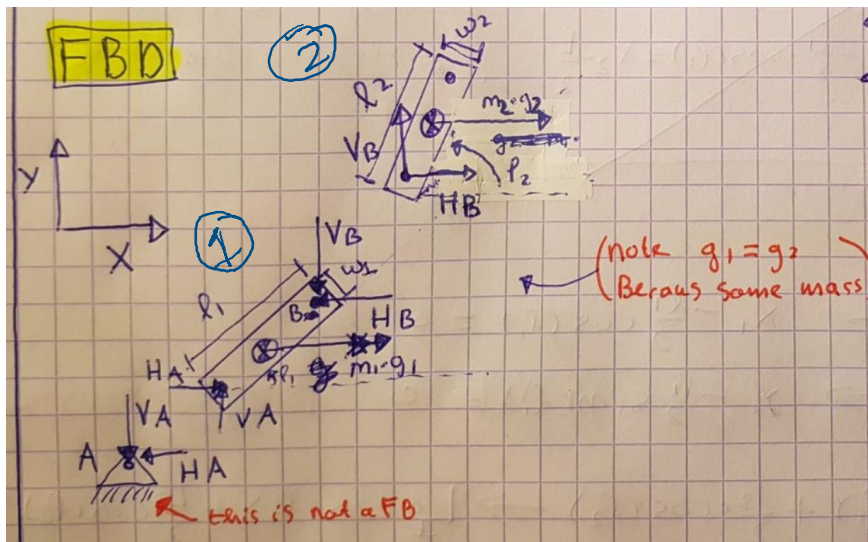 FBD
2
w2
l2
m2·g2
VB
φ2
HB
Y
X
1
VB
w1
l1
B
HB
HA
φ1
m1·g1
VA
VA
A
HA
(note g1 = g2
(Becaus same mass
this is not a FB